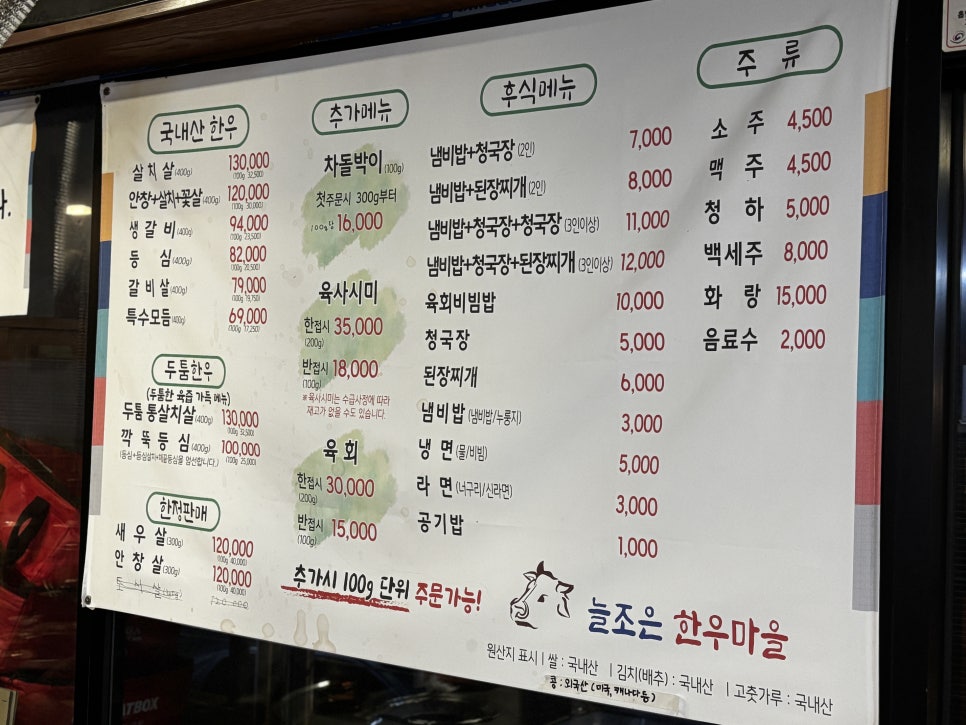 국내산 한우
살치살(400g) 130,000
(100g 32,500)
안창+살치+꽃살(400g) 120,000
(100g 30,000)
생갈비(400g) 94,000
(100g 23,500)
등심(400g) 82,000
(100g 20,500)
갈비살(400g) 79,000
(100g 19,750)
특수모듬(400g) 69,000
(100g 17,250)
두툼한우
(두툼한 육즙 가득 메뉴)
두툼통살치살(400g) 130,000
(100g 32,500)
깍뚝등심(400g) 100,000
(100g 25,000)
한정판매
새우살(300g) 120,000
(100g 40,000)
안창살(300g) 120,000
(100g 40,000)
추가메뉴
차돌박이(100g)
첫주문시 300g부터
100g당 16,000
육사시미
한접시 35,000
(200g)
반접시 18,000
(100g)
※육사시미는 수급사정에 따라
재고가 없을 수도 있습니다.
육회
한접시 30,000
(200g)
반접시 15,000
(100g)
추가시 100g 단위 주문가능!
후식메뉴
냄비밥+청국장(2인) 7,000
냄비밥+된장찌개(2인) 8,000
냄비밥+청국장+청국장(3인이상) 11,000
냄비밥+청국장+된장찌개(3인이상) 12,000
육회비빔밥 10,000
청국장 5,000
된장찌개 6,000
냄비밥(냄비밥/누룽지) 3,000
냉면(물/비빔) 5,000
라면(너구리/신라면) 3,000
공기밥 1,000
주류
소주 4,500
맥주 4,500
청하 5,000
백세주 8,000
화랑 15,000
음료수 2,000
늘조은 한우마을
원산지 표시 | 쌀 : 국내산 | 김치(배추) : 국내산 | 고춧가루 : 국내산
콩 : 외국산 (미국, 캐나다등)